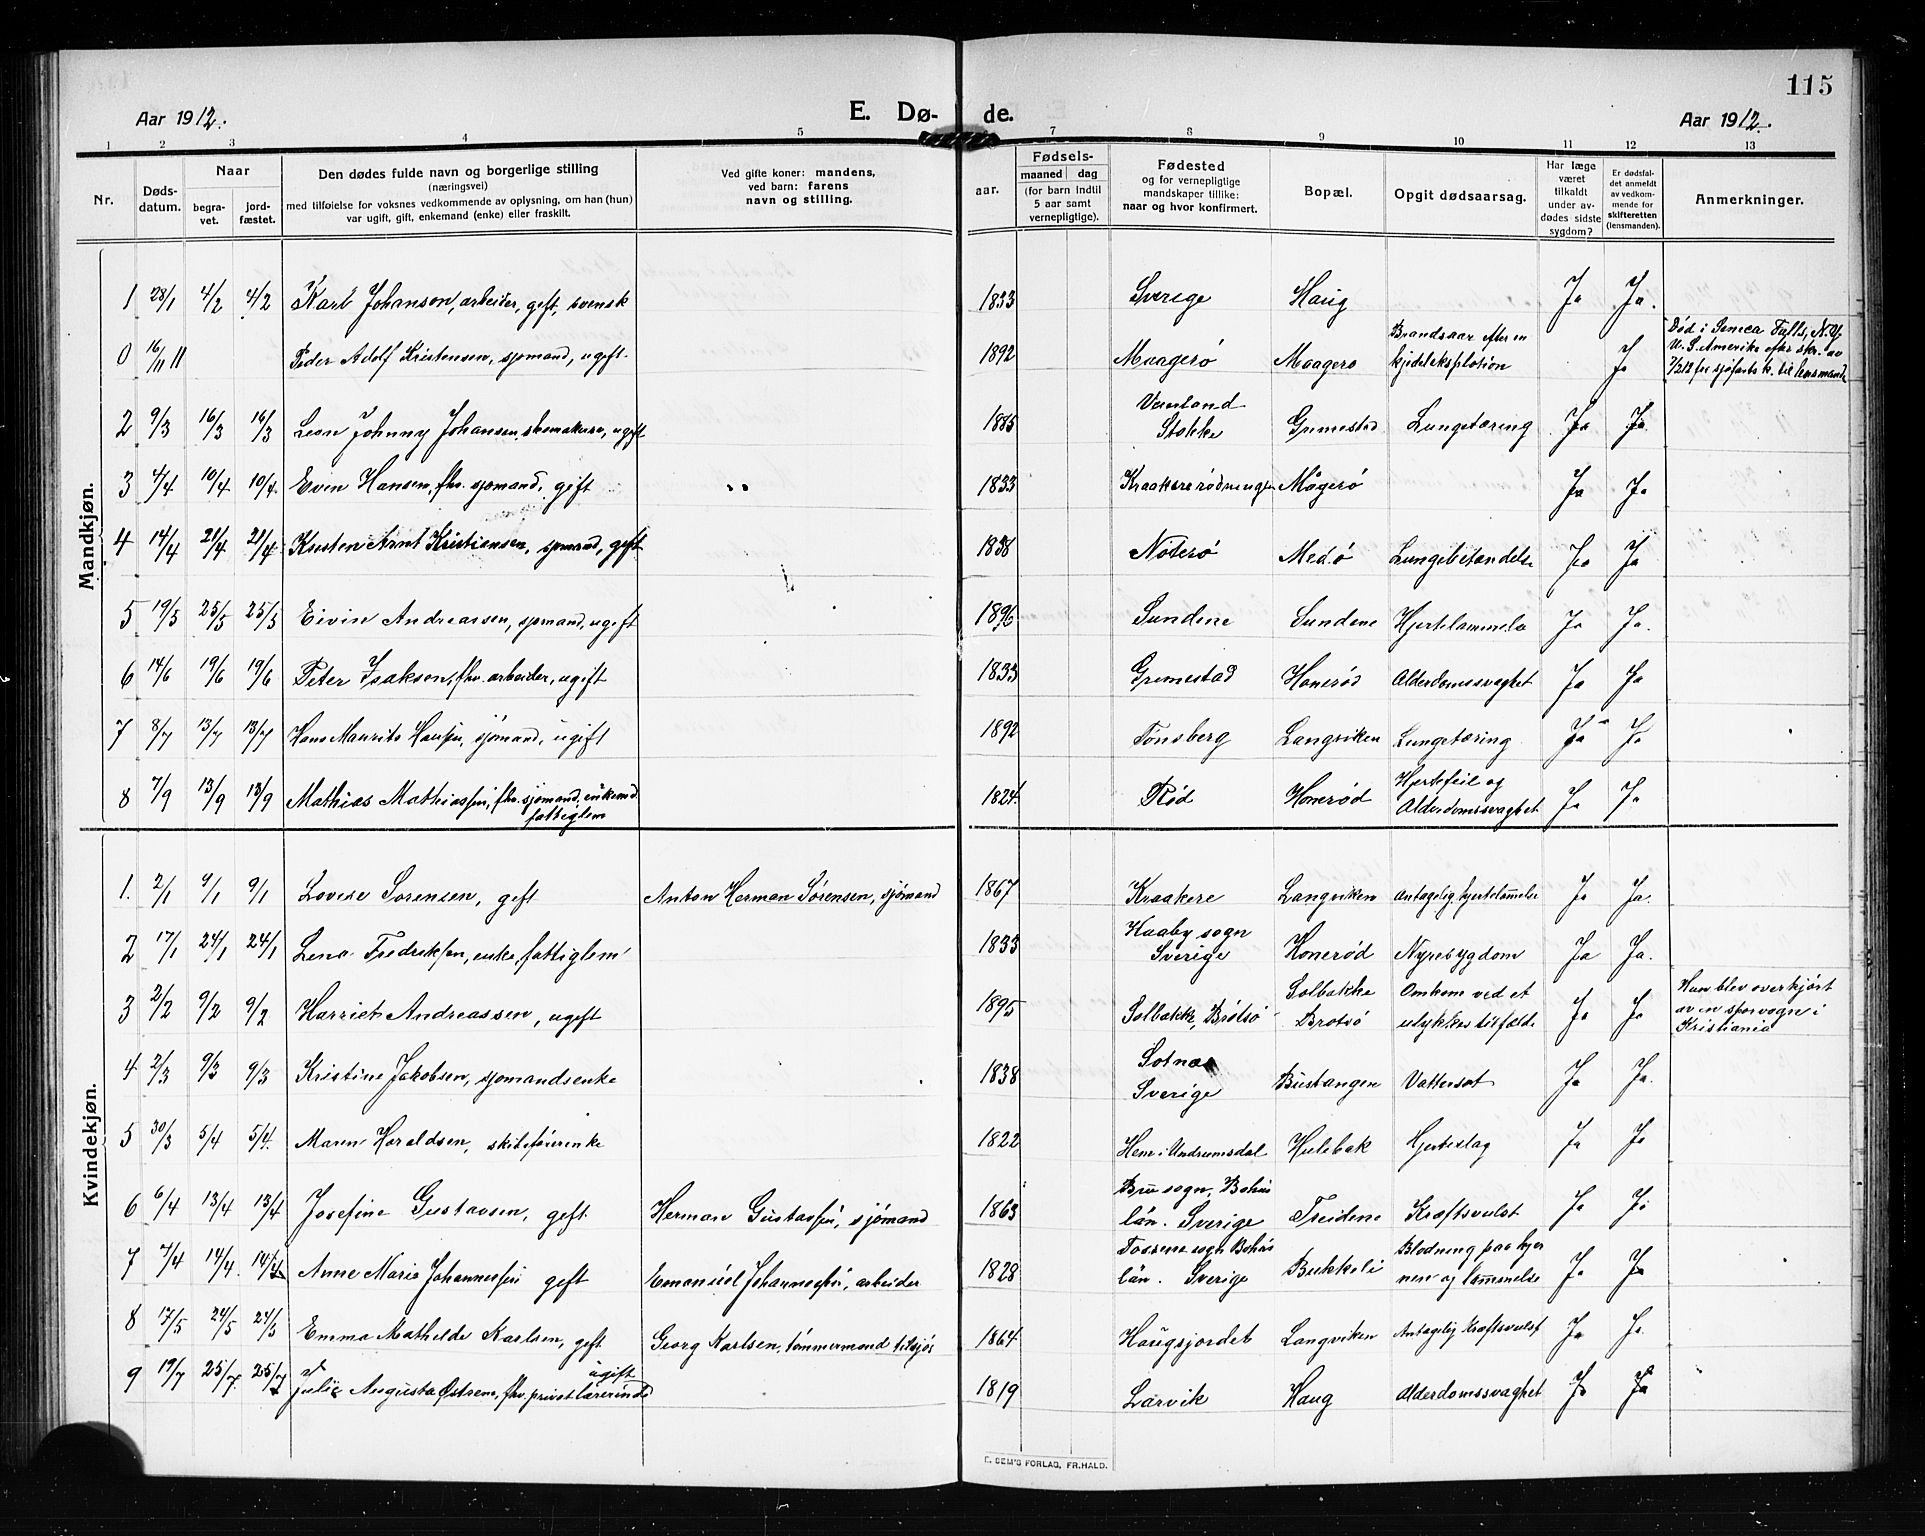 115
Aar 1912.
E. Dø-
de.
Aar 1912.
1 2 3 4 5 7 8 9 10 11 12 13
Nr.
Døds-
datum.
Naar
begra-
vet.
jord-
fæstet.
Den dødes fulde navn og borgerlige stilling
(næringsvei)
med tilføielse for voksnes vedkommende av oplysning, om han (hun)
var ugift, gift, enkemand (enke) eller fraskilt.
Ved gifte koner: mandens,
ved barn: farens
navn og stilling.
aar.
Fødsels-
maaned dag
(for barn indtil
5 aar samt
vernepligtige).
Fødested
og for vernepligtige
mandskaper tillike:
naar og hvor konfirmert.
Bopæl.
Opgit dødsaarsag.
Har læge
været
tilkaldt
under av-
dødes sidste
sygdom?
Er dødsfal-
det anmeldt
av vedkom-
mende for
skifteretten
(lensmanden).
Anmerkninger.
Mandkjøn.
1 28/1 4/2 4/2 Karl Johanson, arbeider, gift, svensk 1833 Sverige Haug Ja Ja.
0 16/11 11 Peder Adolf Kristensen, sjømand, ugift. 1892 Maagerø Maagerø Brandsaar efter en
kjedeleksplotion Ja Død i Seneca Falls, N.Y.
U. S. Amerika efter skr. av
7/2 12 fra sjøfartsk. til lensmand
2 9/3 16/3 16/3 Leon Johnny Johansen, skomaker, ugift 1885 Vemland
Stokke Grimestad Lungetæring Ja Ja.
3 4/4 10/4 10/4. Even Hansen, fhv. sjømand, gift 1833 Kraakere rødningen Mågerø Ja Ja
4 14/4 21/4 21/4. Kristen Arnt Kristiansen, sjømand, gift 1838 Nøterø Medø Lungebetændelse Ja Ja
5 19/5 25/5 25/5 Eivin Andreassen, sjømand, ugift 1896 Sundene Sundene Hjertelammelse Ja Ja.
6 14/6 19/6 19/6 Peter Isakson, fhv. arbeider, ugift 1833 Grimestad Honerød Alderdomssvaghet Ja Ja
7 8/7 13/7 13/7 Hans Maurits Hansen, sjømand, ugift 1892 Tønsberg Langviken Lungetæring Ja Ja
8 7/9 13/9 13/9 Mathias Mathiassen, fhv. sjømand, enkemd
fattiglem 1824. Rød Honerød Hjertefeil og
Alderdomssvaghet Ja Ja
Kvindekjøn.
1. 2/1 9/1 9/1 Lovise Sørensen, gift Anton Herman Sørensen, sjømand 1867 Kraakere Langviken antagelig hjertelammelse Ja Ja.
2 17/1 24/1 24/1 Lena Fredriksen, enke, fattiglem 1833 sogn
Sverige Honerød Nyresygdom Ja Ja.
3 2/2 9/2 9/2 Harriet Andreassen, ugift 1895 Solbakke, Brøtsø Solbakke
Brøtsø Omkom ved et
ulykkestilfælde Ja Ja Hun blev overkjørt
av en sporvogn i
Kristiania
4 2/3 9/3 9/3 Kristine Jakobsen, sjømandsenke 1838 Sotnæs
Sverige Bustangen Vattersot Ja Ja.
5 30/3 5/4 5/4. Maren Haraldsen, skibsførerenke 1822 Hem i Undrumsdal Hulebak Hjerteslag Ja Ja
6 6/4 13/4 13/4 Josefine Gustavsen, gift. Herman Gustavsen, sjømand 1863 Bru sogn, Bohus
län. Sverige Treidene Kræftsvulst Ja Ja
7 7/4 14/4. 14/4 Anne Marie Johannessen gift Emanuel Johannessen, arbeider 1828 Tossene sogn Bohus
län. Sverige Bukkeli Blødning paa hjer
nen og lammelse Ja Ja
8 17/5 24/5 24/5 Emma Mathilde Karlsen, gift Georg Karlsen, tømmermand tilsjøs 1864 Haugsjordet Langviken Antagelig Kræftsvulst Ja Ja.
9 19/7 25/7. 25/7 Julie Augusta Østrem, fhv. privatlærerinde
ugift 1819 Larvik Haug Alderdomssvaghet Ja Ja
E. SEM'S FORLAG, FR.HALD.